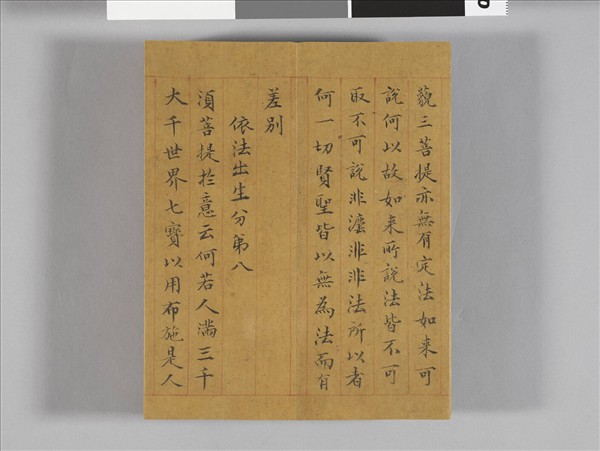 藐三菩提亦無有定法如来可
說何以故如来所說法皆不可
取不可說非法非非法所以者
何一切賢聖皆以無為法而有
差別
依法出生分第八
須菩提扵意云何若人滿三千
大千世界七寶以用布施是人